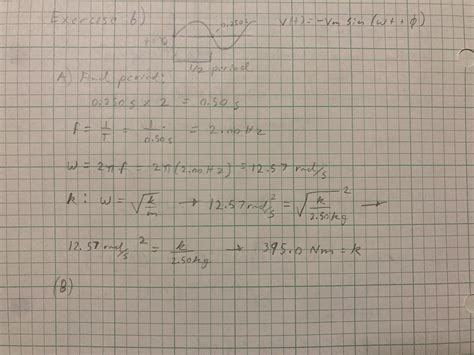 Exercise 6)
0.250s
v(t) = -vm sin(ωt + φ)
1/2 period
A) Find period:
0.250s x 2 = 0.50s
f = 1/T = 1/0.50s = 2.00 Hz
ω = 2πf = 2π(2.00Hz) = 12.57 rad/s
k: ω = √(k/m) → 12.57 rad/s² = √(k/2.50kg)² →
12.57 rad/s² = k/2.50kg → 395.0 Nm = k
(B)